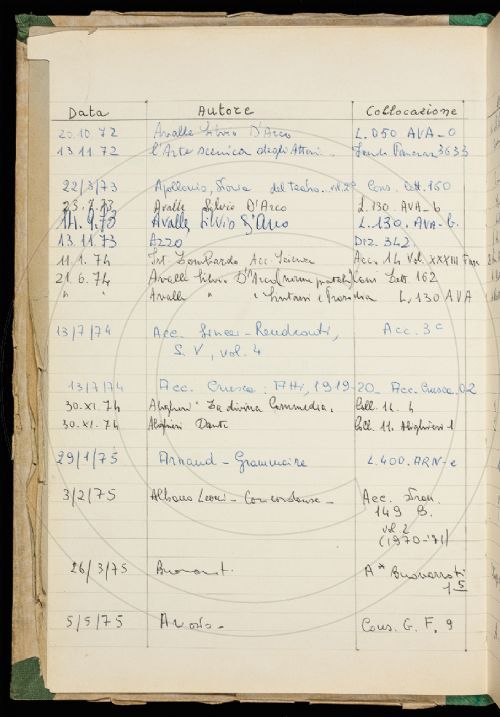 Data Autore Collocazione
20.10.72 Avalle Silvio D'Arco L. 050 AVA-0
13.11.72 l'Arte scenica degli Attori. Fondo 3633
22/3/73 Apollonio, Storia del teatro. vol. 2° Cons. Lett. 160
23.7.73 Avalle Silvio D'Arco L. 130. AVA-6
14.9.73 Avalle Silvio D'Arco L. 130. AVA-6.
13.11.73 Azzo DIZ. 342
11.1.74 Ist. Lombardo Acc. Scienze Acc. 14 Vol. XXXIII
21.6.74 Avalle Silvio D'Arco Cons Lett. 162
" " Avalle " " Sintassi e Prosodia L, 130 AVA
13/7/74 Acc. Lincei - Rendiconti, Acc. 3c
S. V, vol. 4
13/7/74 Acc. Crusca. Atti, 1919-20 Acc. Crusca. 02
30.XI.74 Alighieri La divina Commedia, Coll. 11. 4
30.XI.74 Alighieri Dante Coll. 11. Alighieri 1
29/1/75 Arnaud - Grammaire L.400. ARN-e
3/2/75 Albano Leoni - Concordanze - Acc. Fran.
149 B.
vol. 2
(1970-'71)
26/3/75 Buonarrot. A* Buonarroti
1 5
5/5/75 Cons. G. F. 9